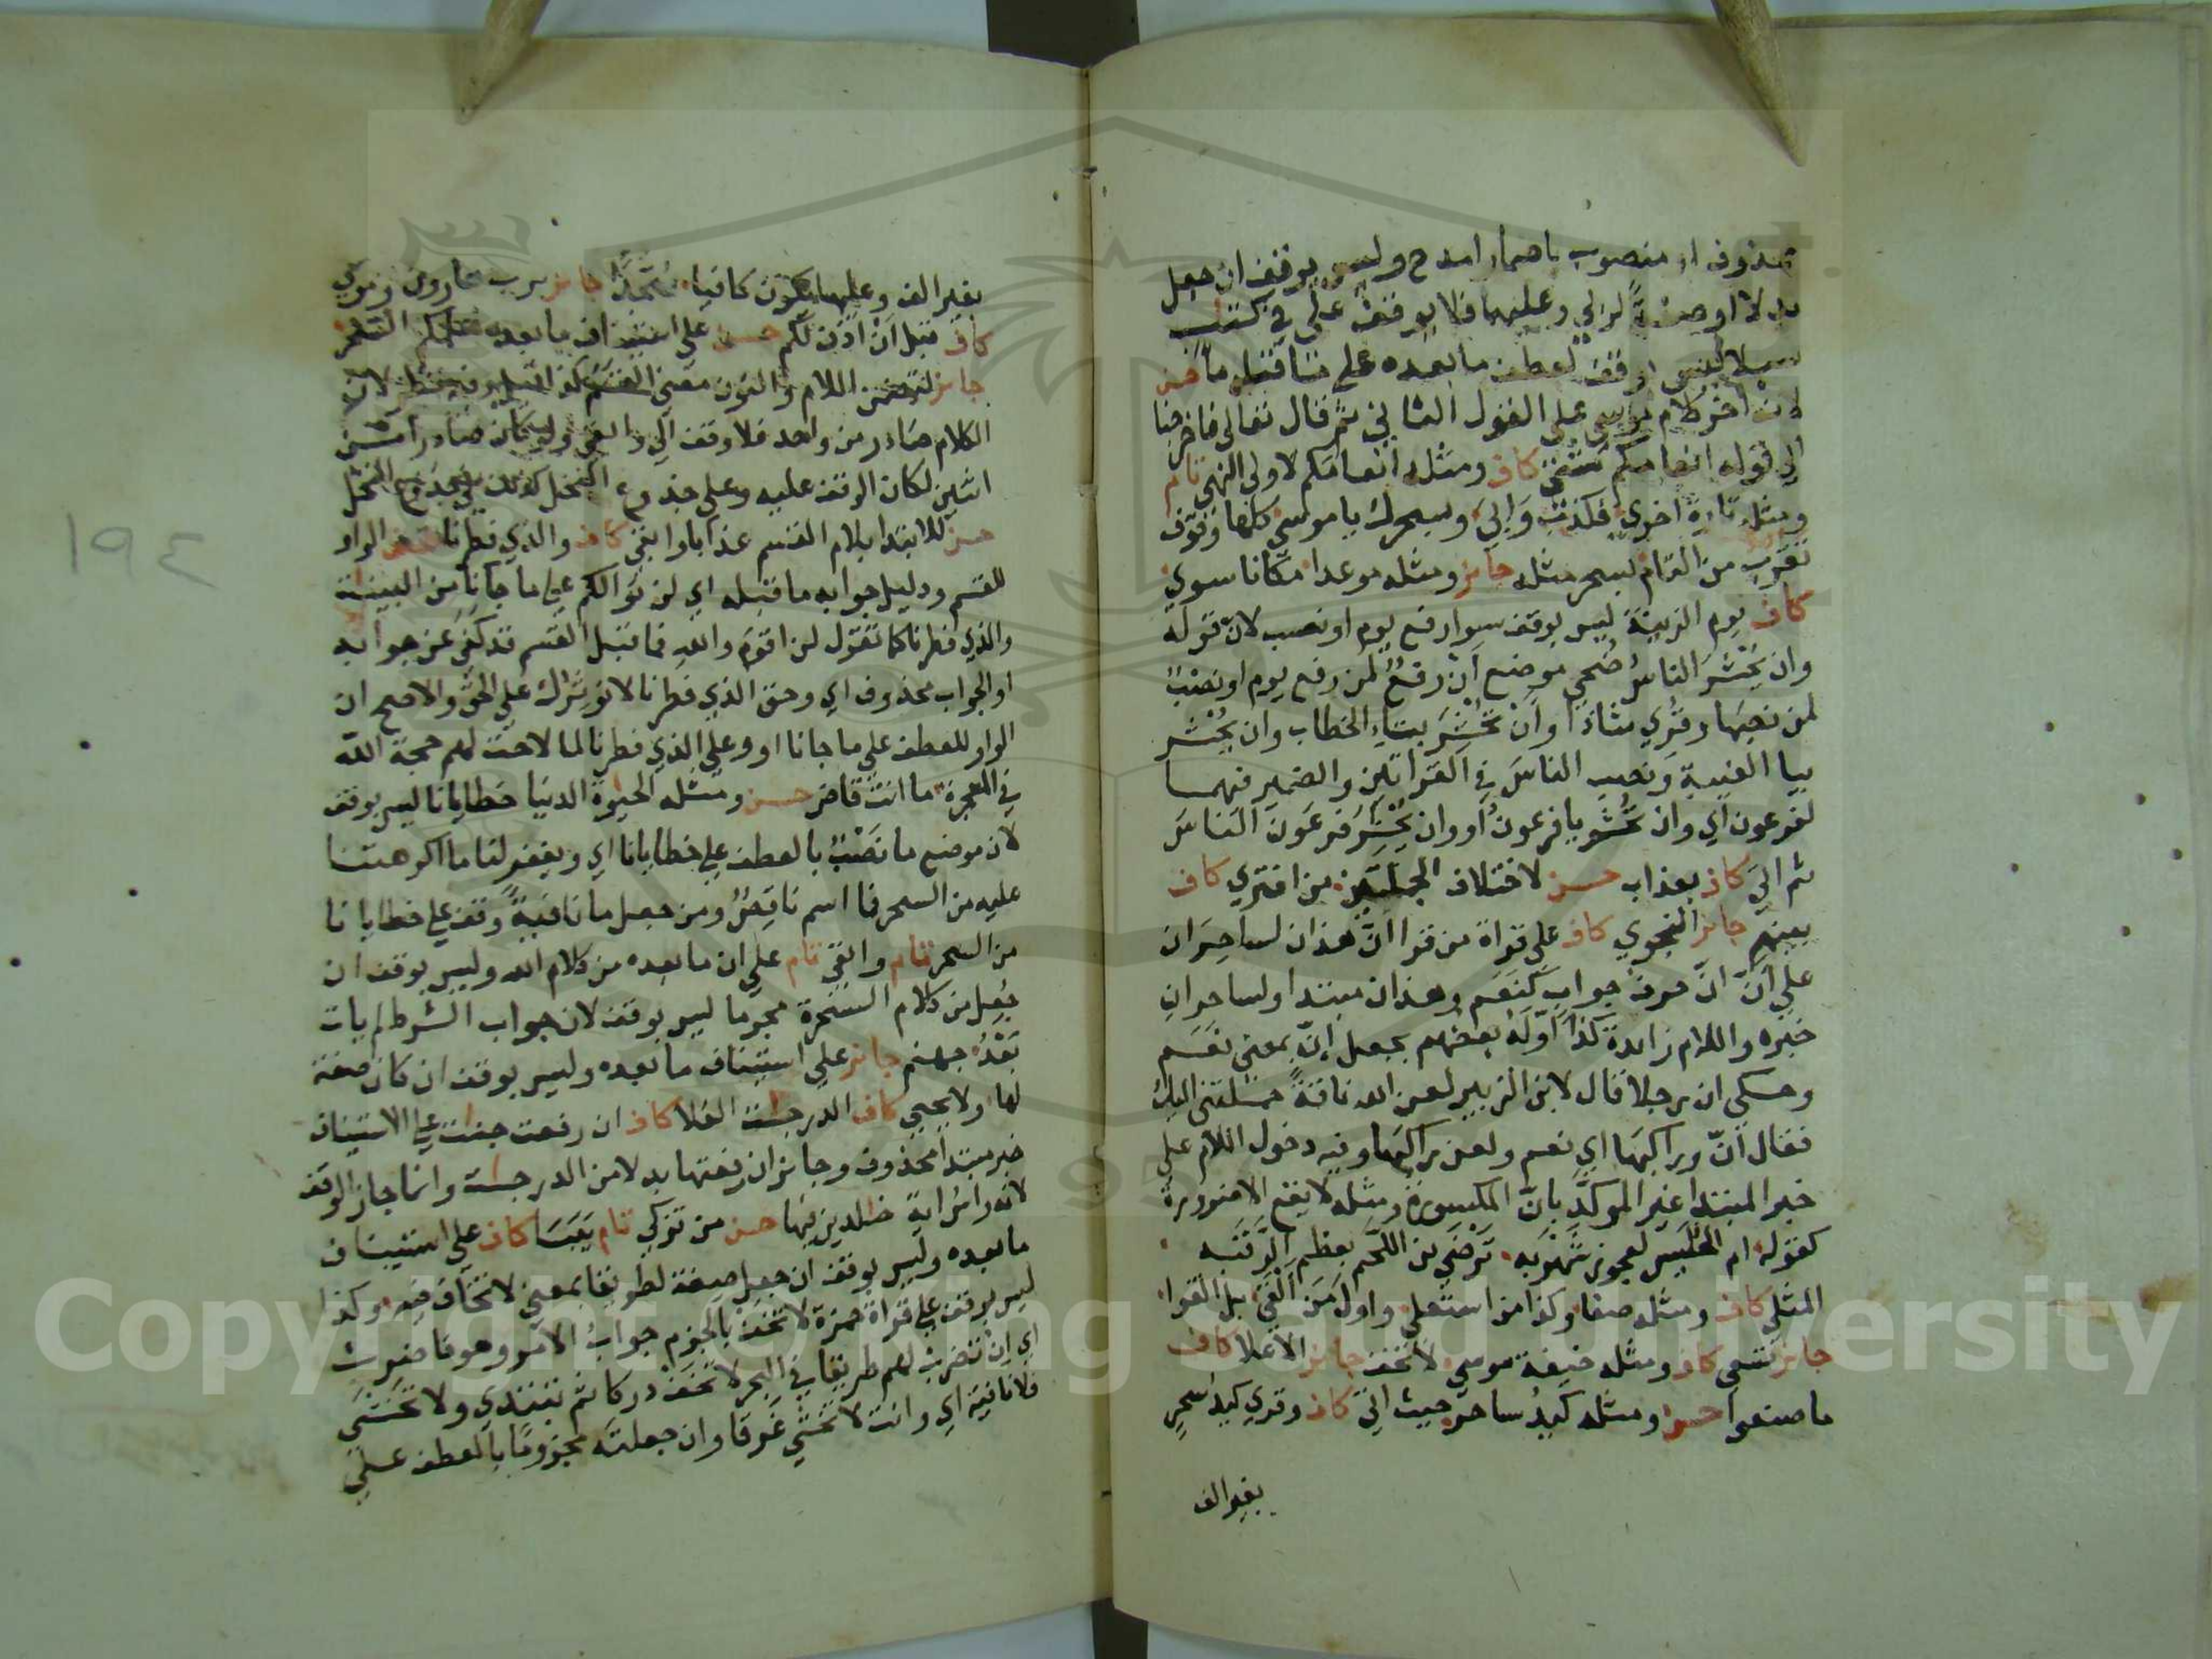 محذوف او منصوب باضمار امدح وليس بوقف ان جعل
بدلا او صفة لربي وعليهما فلا يوقف على في كتاب
سبلا ليس بوقف لعطف ما بعده على ما قبله ماء حسن
لانه اخر كلام موسى على القول الثاني ثم قال تعالى فاخرجنا
الى قوله انعامكم شتى كاف ومثله انعامكم لاولى النهى تام
ومثله تارة اخرى فكذب وابى وبسحرك يا موسى كلها وقوف
تقرب من التام بسحر مثله جائز ومثله موعدا مكانا سوى
كاف يوم الزينة ليس بوقف سوا رفع يوم او نصب لان قوله
وان يحشر الناس ضحى موضع ان رفع لمن رفع يوم او نصب
لمن نصبها وقرى شاذا وان تحشر بتاء الخطاب وان يحشر
بيا الغيبة ونصب الناس في القراتين والضمير فيهما
لفرعون اي وان تحشر يا فرعون او وان يحشر فرعون الناس
ثم اتى كاف بعذاب حسن لاختلاف الجملتين من افترى كاف
بينهم جائز النجوى كاف على قراة من قرا ان هذان لساحران
على ان ان حرف جواب كنعم وهذان مبتدا ولساحران
خبره واللام زايدة كذا اوله بعضهم بجعل ان بمعنى نعم
وحكى ان رجلا قال لابن الزبير لعن الله ناقة حملتنى اليك
فقال ان وراكبها اي نعم ولعن راكبها وفيه دخول اللام على
خبر المبتدا غير الموكد بان المكسورة ومثله لا يقع الا ضرورة
كقوله ام الحليس لعجوز شهربه ترضى من اللحم بعظم الرقبه
المثلى كاف ومثله صفا وكذا من استعلى واول من القى بل القوا
جائز تسعى كاف ومثله خيفة موسى لا تخف جائز الاعلا كاف
ما صنعوا حسن ومثله كيد ساحر حيث اتى كاف وقرى كيد سحر
بغير الف
بغير الف وعليهما يكون كافيا سجدا جائز برب هارون وموسى
كاف قبل ان آذن لكم حسن على استيناف ما بعده السحر
جائز لتضمن اللام والنون معنى القسم كذا قيل وفيه نظر لان
الكلام صادر من واحد فلا وقف الى وابقى ولو كان صادرا من
اثنين لكان الوقف عليه وعلى جذوع النخل
حسن للابتدا بلام القسم عذابا وابقى كاف والذي فطرنا الواو
للقسم ودليل جوابه ما قبله اي لن نوثركم على ما جانا من البينات
والذي فطرنا كما تقول لن اقوم والله فما قبل القسم قد كفى عن جوابه
او الجواب محذوف اي وحق الذي فطرنا لا نوثرك على الحق والاصح ان
الواو للعطف على ما جانا او وعلى الذي فطرنا لما لاحت لهم حجة الله
في المعجزة ما انت قاض حسن ومثله الحيوة الدنيا خطايانا ليس بوقف
لان موضع ما نصب بالعطف على خطايانا اي ويغفر لنا ما اكرهتنا
عليه من السحر فما اسم ناقص ومن جعل ما نافية وقف على خطايانا
من السحر تام وابقى تام على ان ما بعده من كلام الله وليس بوقف ان
جعل من كلام السحرة مجرما ليس بوقف لان جواب الشرط لم يات
بعد جهنم جائز على استيناف ما بعده وليس بوقف ان كان صفة
لها ولا يحيى كاف الدرجات العلا كاف ان رفعت جنات على الاستيناف
خبر مبتدا محذوف وجائز ان رفعتها بدلا من الدرجات وانما جاز الوقف
لانه راس اية خالدين فيها حسن من تزكى تام يبسا كاف على استيناف
ما بعده وليس بوقف ان جعل صفة لطريقا بمعنى لا تخاف فيه وكذا
ليس بوقف على قراة حمزة لا تخف بالجزم جواب الامر وهو فاضرب
اي ان تضرب لهم طريقا في البحر لا تخف دركا ثم تبتدي ولا تخشى
فلا نافية اي وانت لا تخشى غرقا وان جعلته مجزوما بالعطف على
١٩٤
Copyright © King Saud University